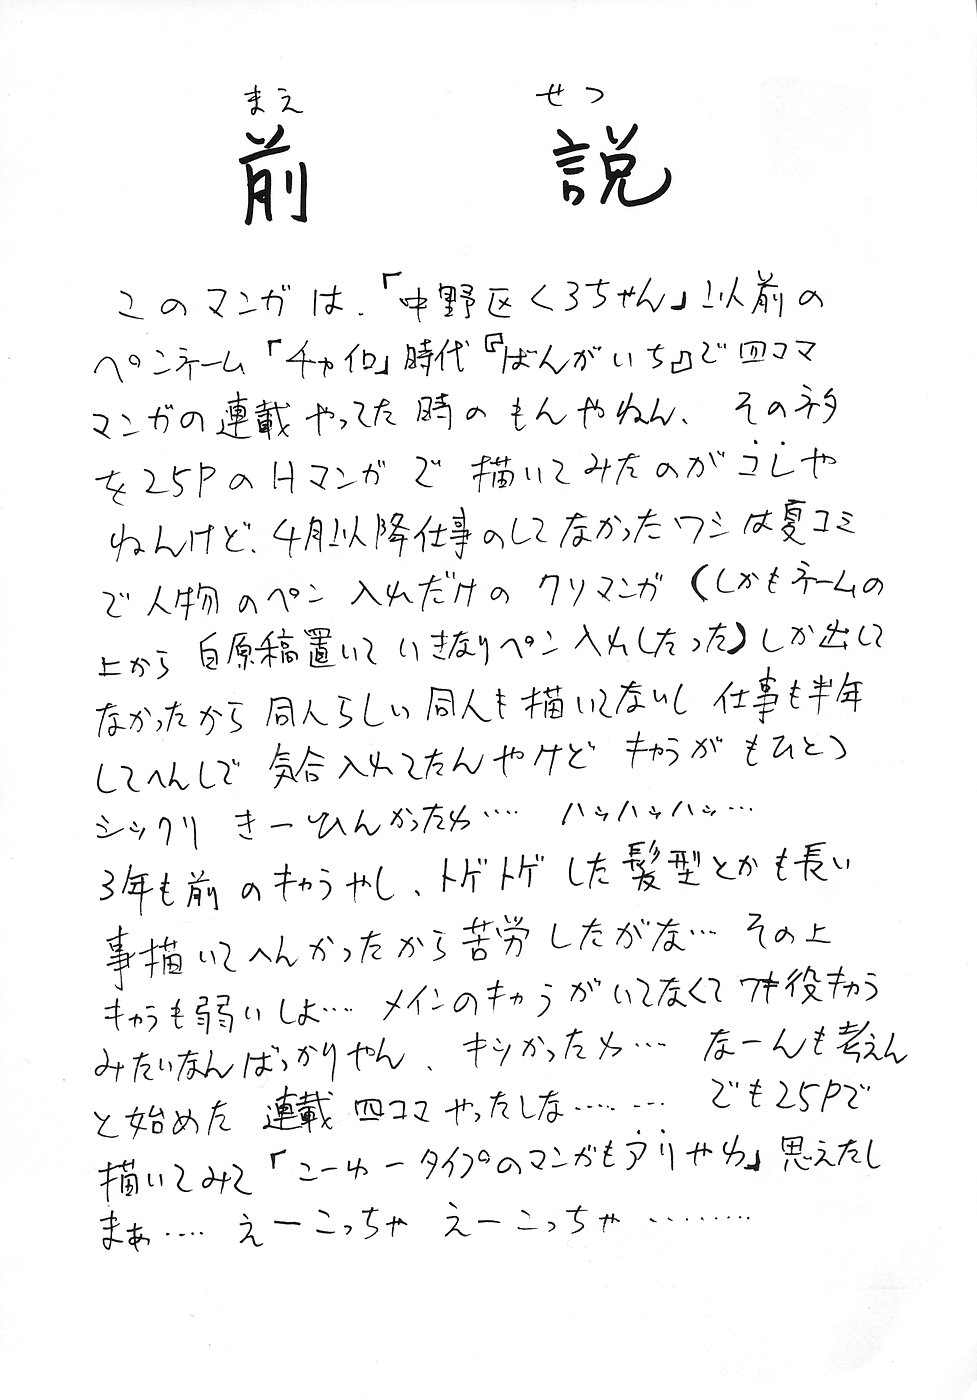 まえ せつ
前 説
このマンガは、「中野区くろちゃん」以前の
ペンネーム「チャイロ」時代『ばんがいち』で四コマ
マンガの連載やってた時のもんやねん、そのネタ
を25PのHマンガで描いてみたのがコレや
ねんけど、4月以降仕事のしてなかったワシは夏コミ
で人物のペン入れだけのクソマンガ(しかもネームの
上から白原稿置いていきなりペン入れしたった)しか出して
なかったから同人らしい同人も描いてないし仕事も半年
してへんしで気合入れてたんやけどキャラがもひとつ
シックリきーひんかったわ…. ハッハッハッ…
3年も前のキャラやし、トゲトゲした髪型とかも長い
事描いてへんかったから苦労したがな… その上
キャラも弱いしよ…. メインのキャラがいてなくてワキ役キャラ
みたいなんばっかりやん、キツかったわ… なーんも考えん
と始めた連載四コマやったしな……… でも25Pで
描いてみて「こーゆータイプのマンガもアリやわ」思えたし
まぁ…. えーこっちゃ えーこっちゃ ………